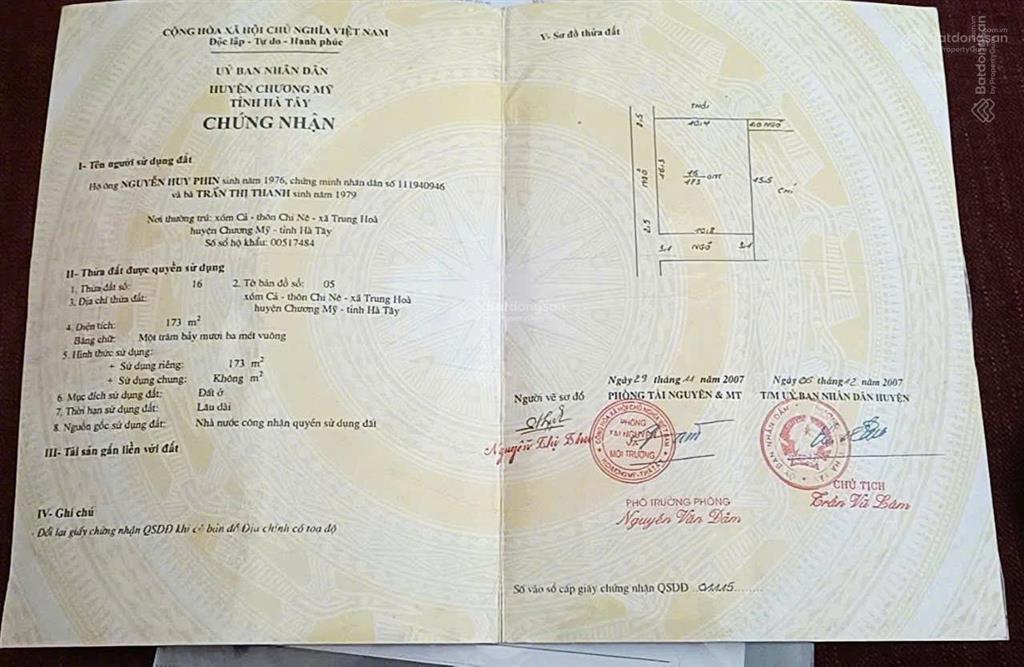 CỘNG HÒA XÃ HỘI CHỦ NGHĨA VIỆT NAM
Độc lập - Tự do - Hạnh phúc
UỶ BAN NHÂN DÂN
HUYỆN CHƯƠNG MỸ
TỈNH HÀ TÂY
CHỨNG NHẬN
I- Tên người sử dụng đất
Hộ ông NGUYỄN HUY PHIN sinh năm 1976, chứng minh nhân dân số 111940946
và bà TRẦN THỊ THANH sinh năm 1979
Nơi thường trú: xóm Cả - thôn Chi Nê - xã Trung Hoà
huyện Chương Mỹ - tỉnh Hà Tây
Số sổ hộ khẩu: 00517484
II- Thửa đất được quyền sử dụng
1. Thửa đất số: 16 2. Tờ bản đồ số: 05
3. Địa chỉ thửa đất: xóm Cả - thôn Chi Nê - xã Trung Hoà
huyện Chương Mỹ - tỉnh Hà Tây
4. Diện tích: 173 m2
Bằng chữ: Một trăm bảy mươi ba mét vuông
5. Hình thức sử dụng:
+ Sử dụng riêng: 173 m2
+ Sử dụng chung: Không m2
6. Mục đích sử dụng đất: Đất ở
7. Thời hạn sử dụng đất: Lâu dài
8. Nguồn gốc sử dụng đất: Nhà nước công nhận quyền sử dụng đất
III- Tài sản gắn liền với đất
IV- Ghi chú
- Đổi lại giấy chứng nhận QSDĐ khi có bản đồ Địa chính có toạ độ
V- Sơ đồ thửa đất
THỔI
10.4
2.0 NGÕ
2.5
NGÕ
16.3
16 ONT
173
15.5
CHÍ
2.5
10.8
3.1 NGÕ 3.1
Ngày 29 tháng 11 năm 2007
Ngày 05 tháng 12 năm 2007
Người vẽ sơ đồ
PHÒNG TÀI NGUYÊN & MT
T/M UỶ BAN NHÂN DÂN HUYỆN
PHÒNG
TÀI NGUYÊN
MÔI TRƯỜNG
Nguyễn Thị Thu
PHÓ TRƯỞNG PHÒNG
Nguyễn Văn Dảm
CHỦ TỊCH
Trần Vũ Lâm
Số vào sổ cấp giấy chứng nhận QSDĐ ..01115.......
Batdongsan
by PropertyGuru
Batdongsan
.com.vn
by PropertyGuru
since 2007
Batdongsan